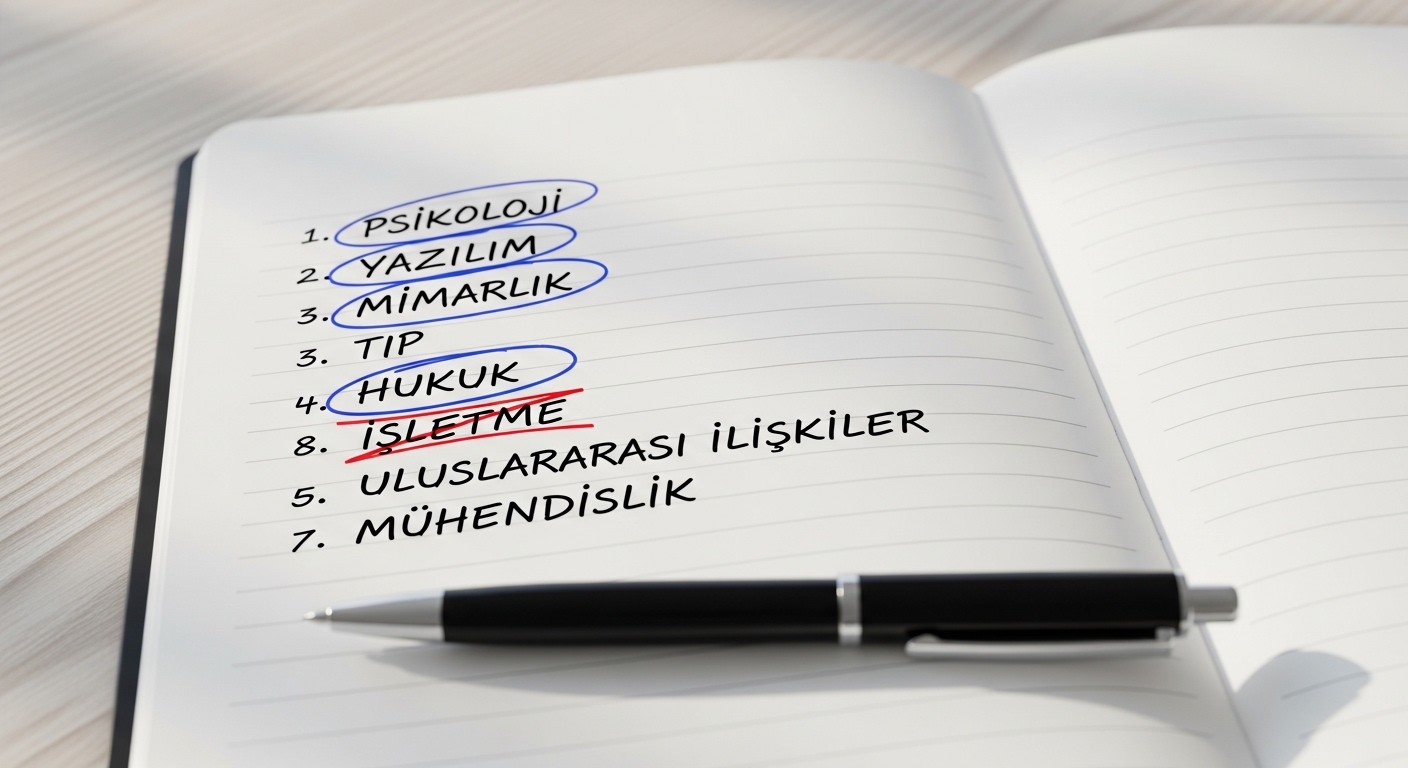 1. PSİKOLOJİ
2. YAZILIM
3. MİMARLIK
3. TIP
4. HUKUK
8. İŞLETME
5. ULUSLARARASI İLİŞKİLER
7. MÜHENDİSLİK